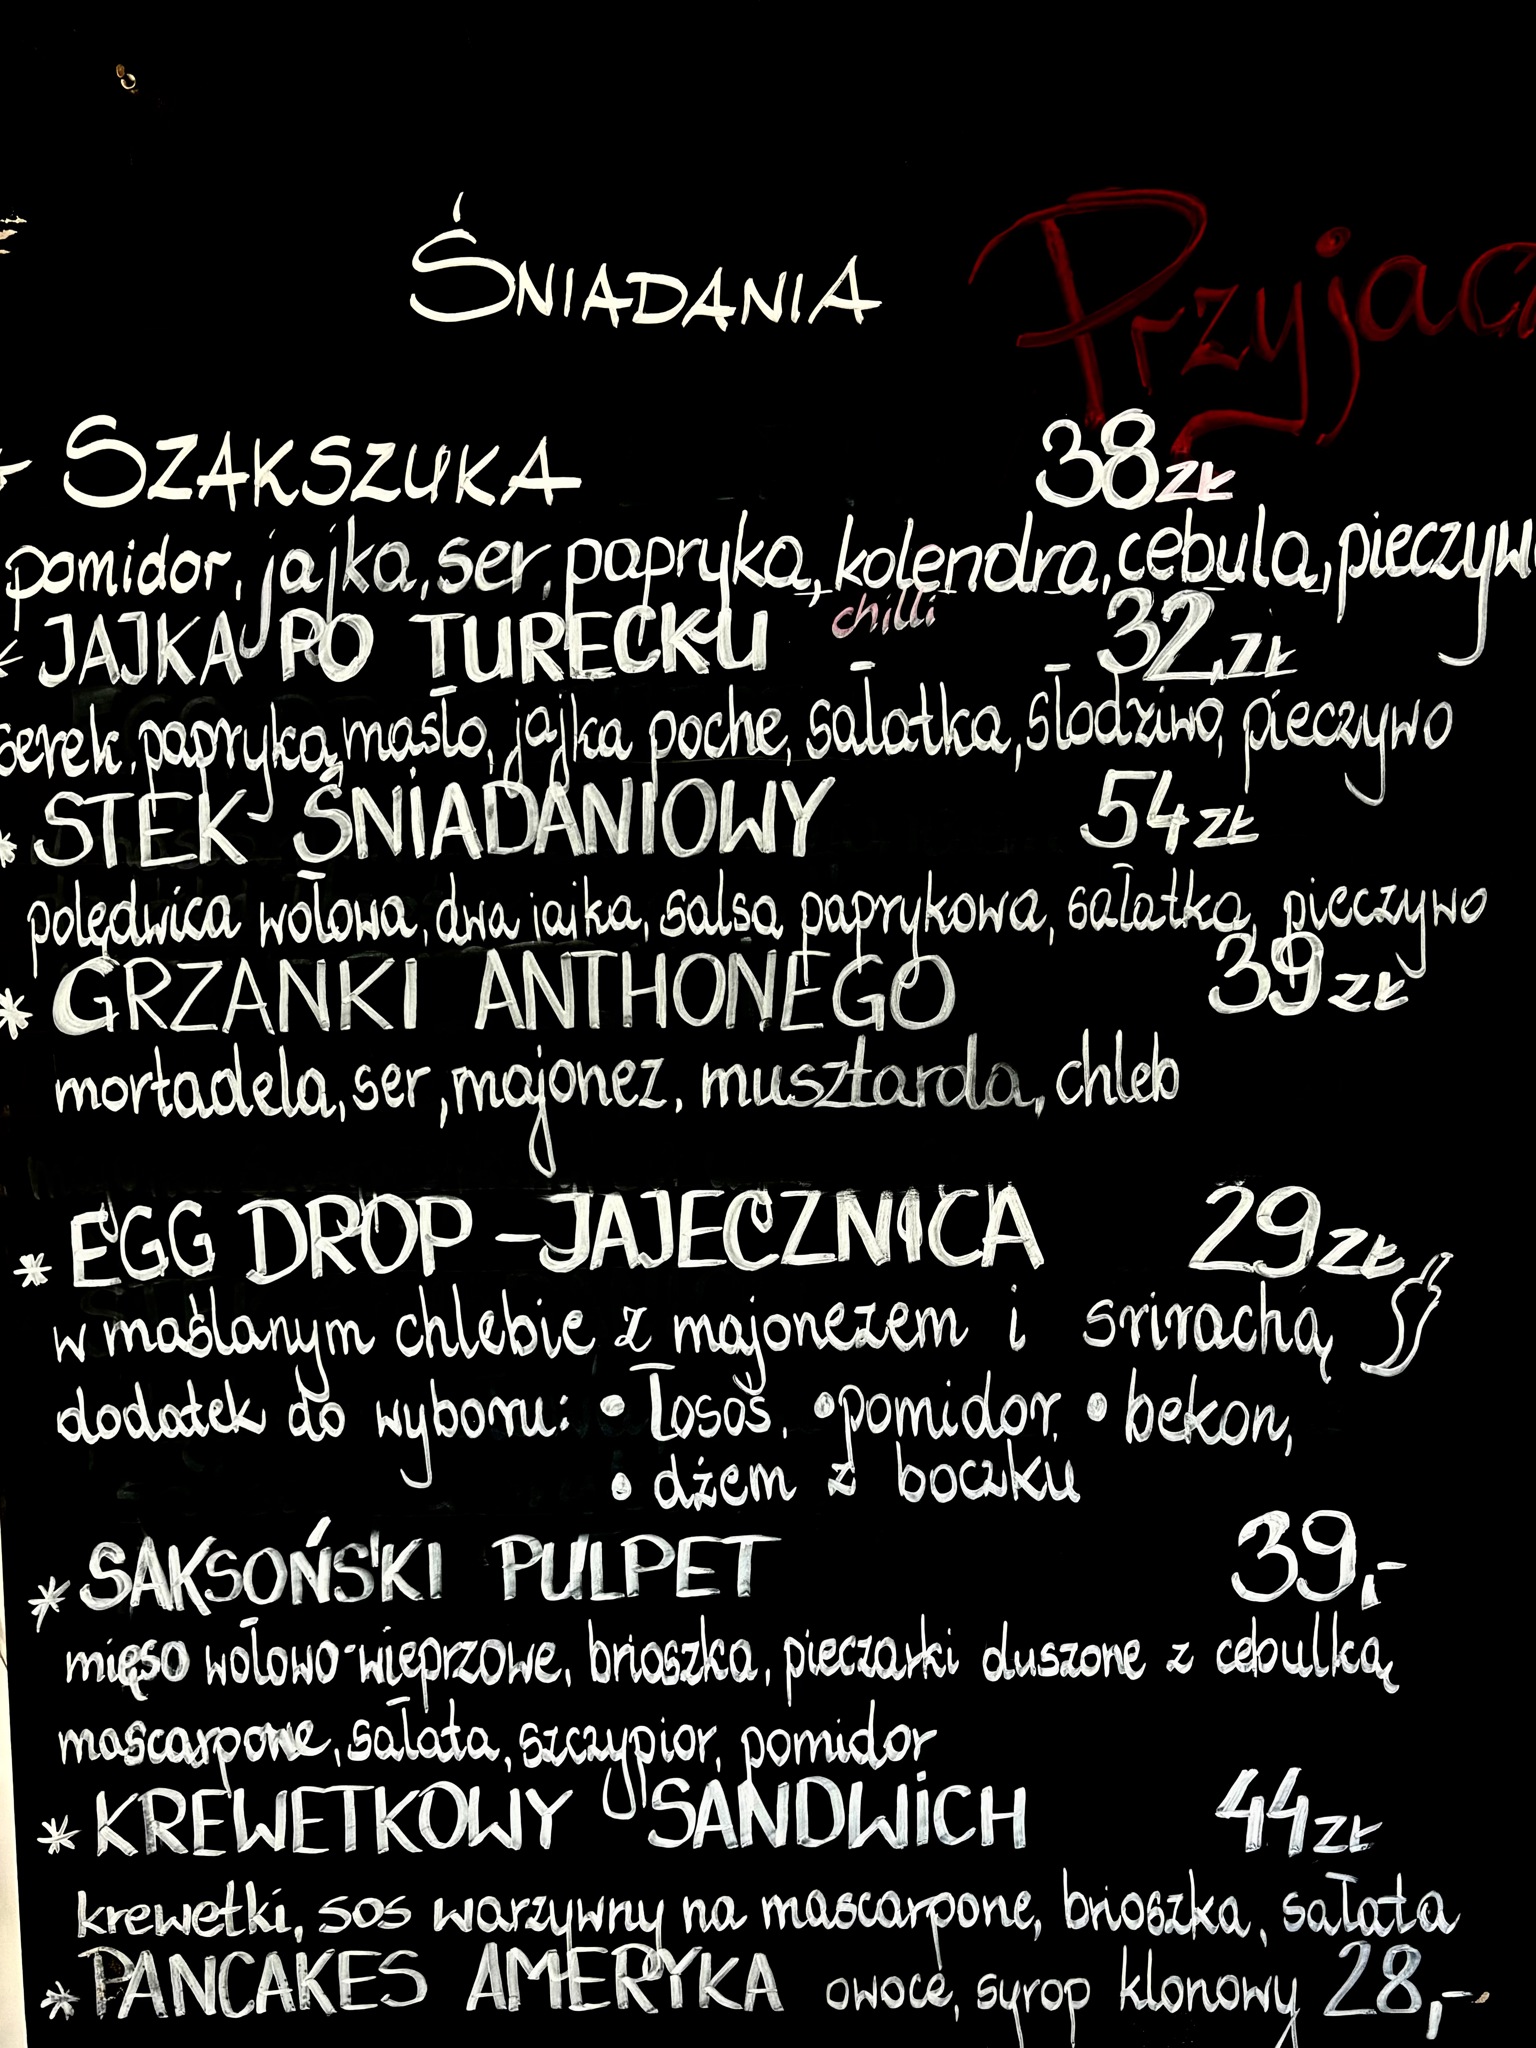 ŚNIADANIA
SZAKSZUKA 38 ZŁ
pomidor, jajka, ser, papryka, kolendra, cebula,
chilli
* JAJKA PO TURECKU 32,ZŁ
serek, papryka, masło, jajka poche, sałatka, słodziwo, pieczywo
* STEK ŚNIADANIOWY 54 ZŁ
polędwica wołowa, dwa jajka, salsa paprykowa, sałatka, pieczywo
* GRZANKI ANTHONEGO 39 ZŁ
mortadela, ser, majonez, musztarda, chleb
* EGG DROP - JAJECZNICA 29 ZŁ
w maślanym chlebie z majonezem i srirachą
dodatek do wyboru: • łosoś, • pomidor, • bekon,
• dżem z boczku
* SAKSOŃSKI PULPET 39,-
mięso wołowo-wieprzowe, brioszka, pieczarki duszone z cebulką
mascarpone, sałata, szczypior, pomidor
* KREWETKOWY SANDWICH 44 ZŁ
krewetki, sos warzywny na mascarpone, brioszka, sałata
* PANCAKES AMERYKA owoce, syrop klonowy 28,-